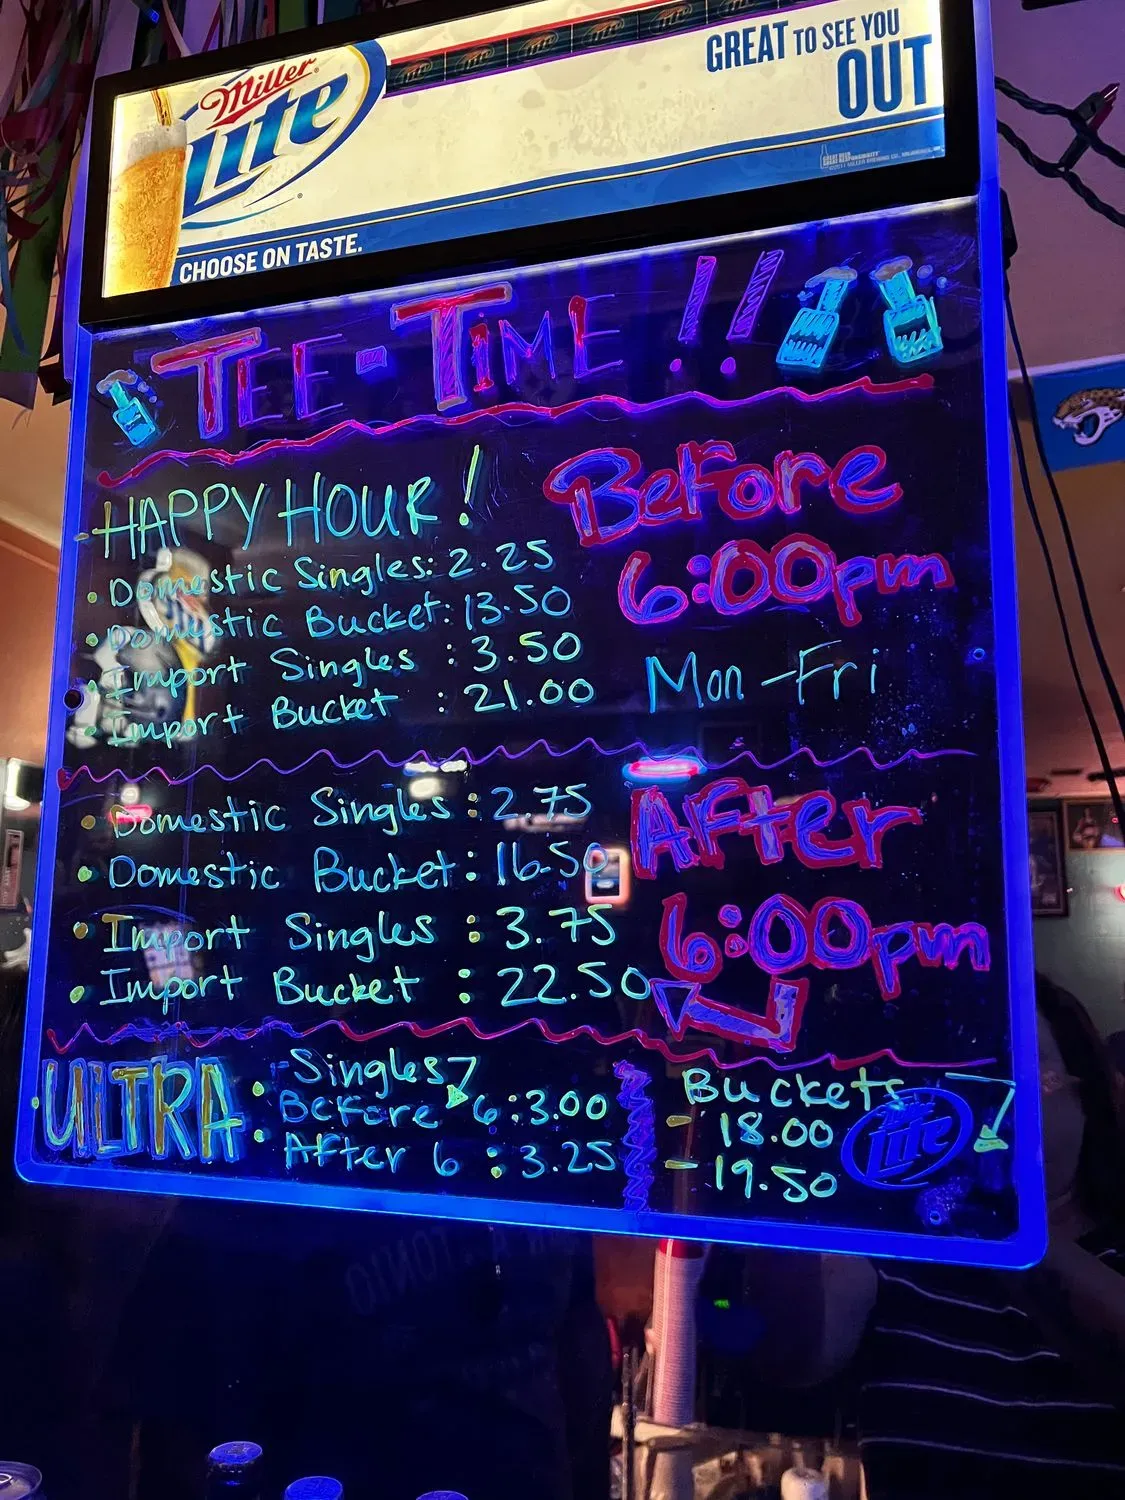 Miller
Lite
GREAT TO SEE YOU
OUT
CHOOSE ON TASTE.
TEE-TIME!!
HAPPY HOUR!
Before
6:00pm
Mon-Fri
• Domestic Singles: 2.25
• Domestic Bucket: 13.50
• Import Singles : 3.50
• Import Bucket : 21.00
• Domestic Singles : 2.75
• Domestic Bucket : 16.50
• Import Singles : 3.75
• Import Bucket : 22.50
After
6:00pm
ULTRA
-Singles
• Before 6 : 3.00
• After 6 : 3.25
Buckets
- 18.00
- 19.50
Lite